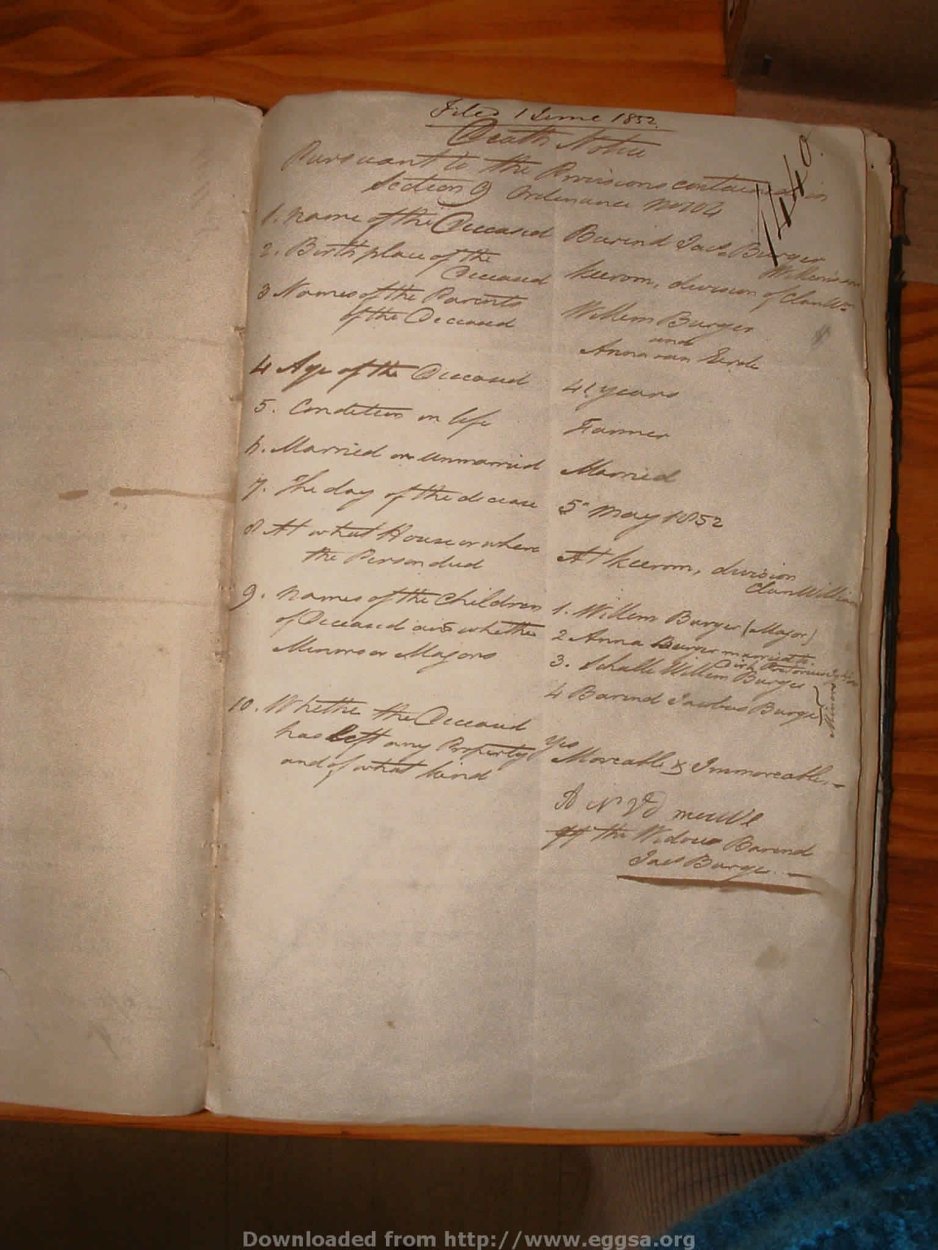 Filed 1 June 1852
1440
Death Notice
Pursuant to the Provisions contained in
Section 9 Ordinance No 104
1. Name of the Deceased Barend Jacs Burger
Willemson
2. Birth place of the
Deceased Keerom, division of ClanWm
3 Names of the Parents
of the Deceased
Willem Burger
and
Anna van
4 Age of the Deceased 41 years
5. Condition in life Farmer
6. Married or unmarried Married
7. The day of the decease 5 May 1852
8 At what House or where
the Person died
At Keerom, division
ClanWilliam
9. Names of the Children
of Deceased and whether
Minors or Majors
1. Willem Burger (Major)
2 Anna Burger married to
Pretorius
3. Schalk Willem Burger
4 Barend Jacobus Burger
Minors
10. Whether the Deceased
has left any Property
and of what kind
Yes
Moveable & Immoveable.
of the Widow Barend
Jacs Burger.
Downloaded from http://www.eggsa.org